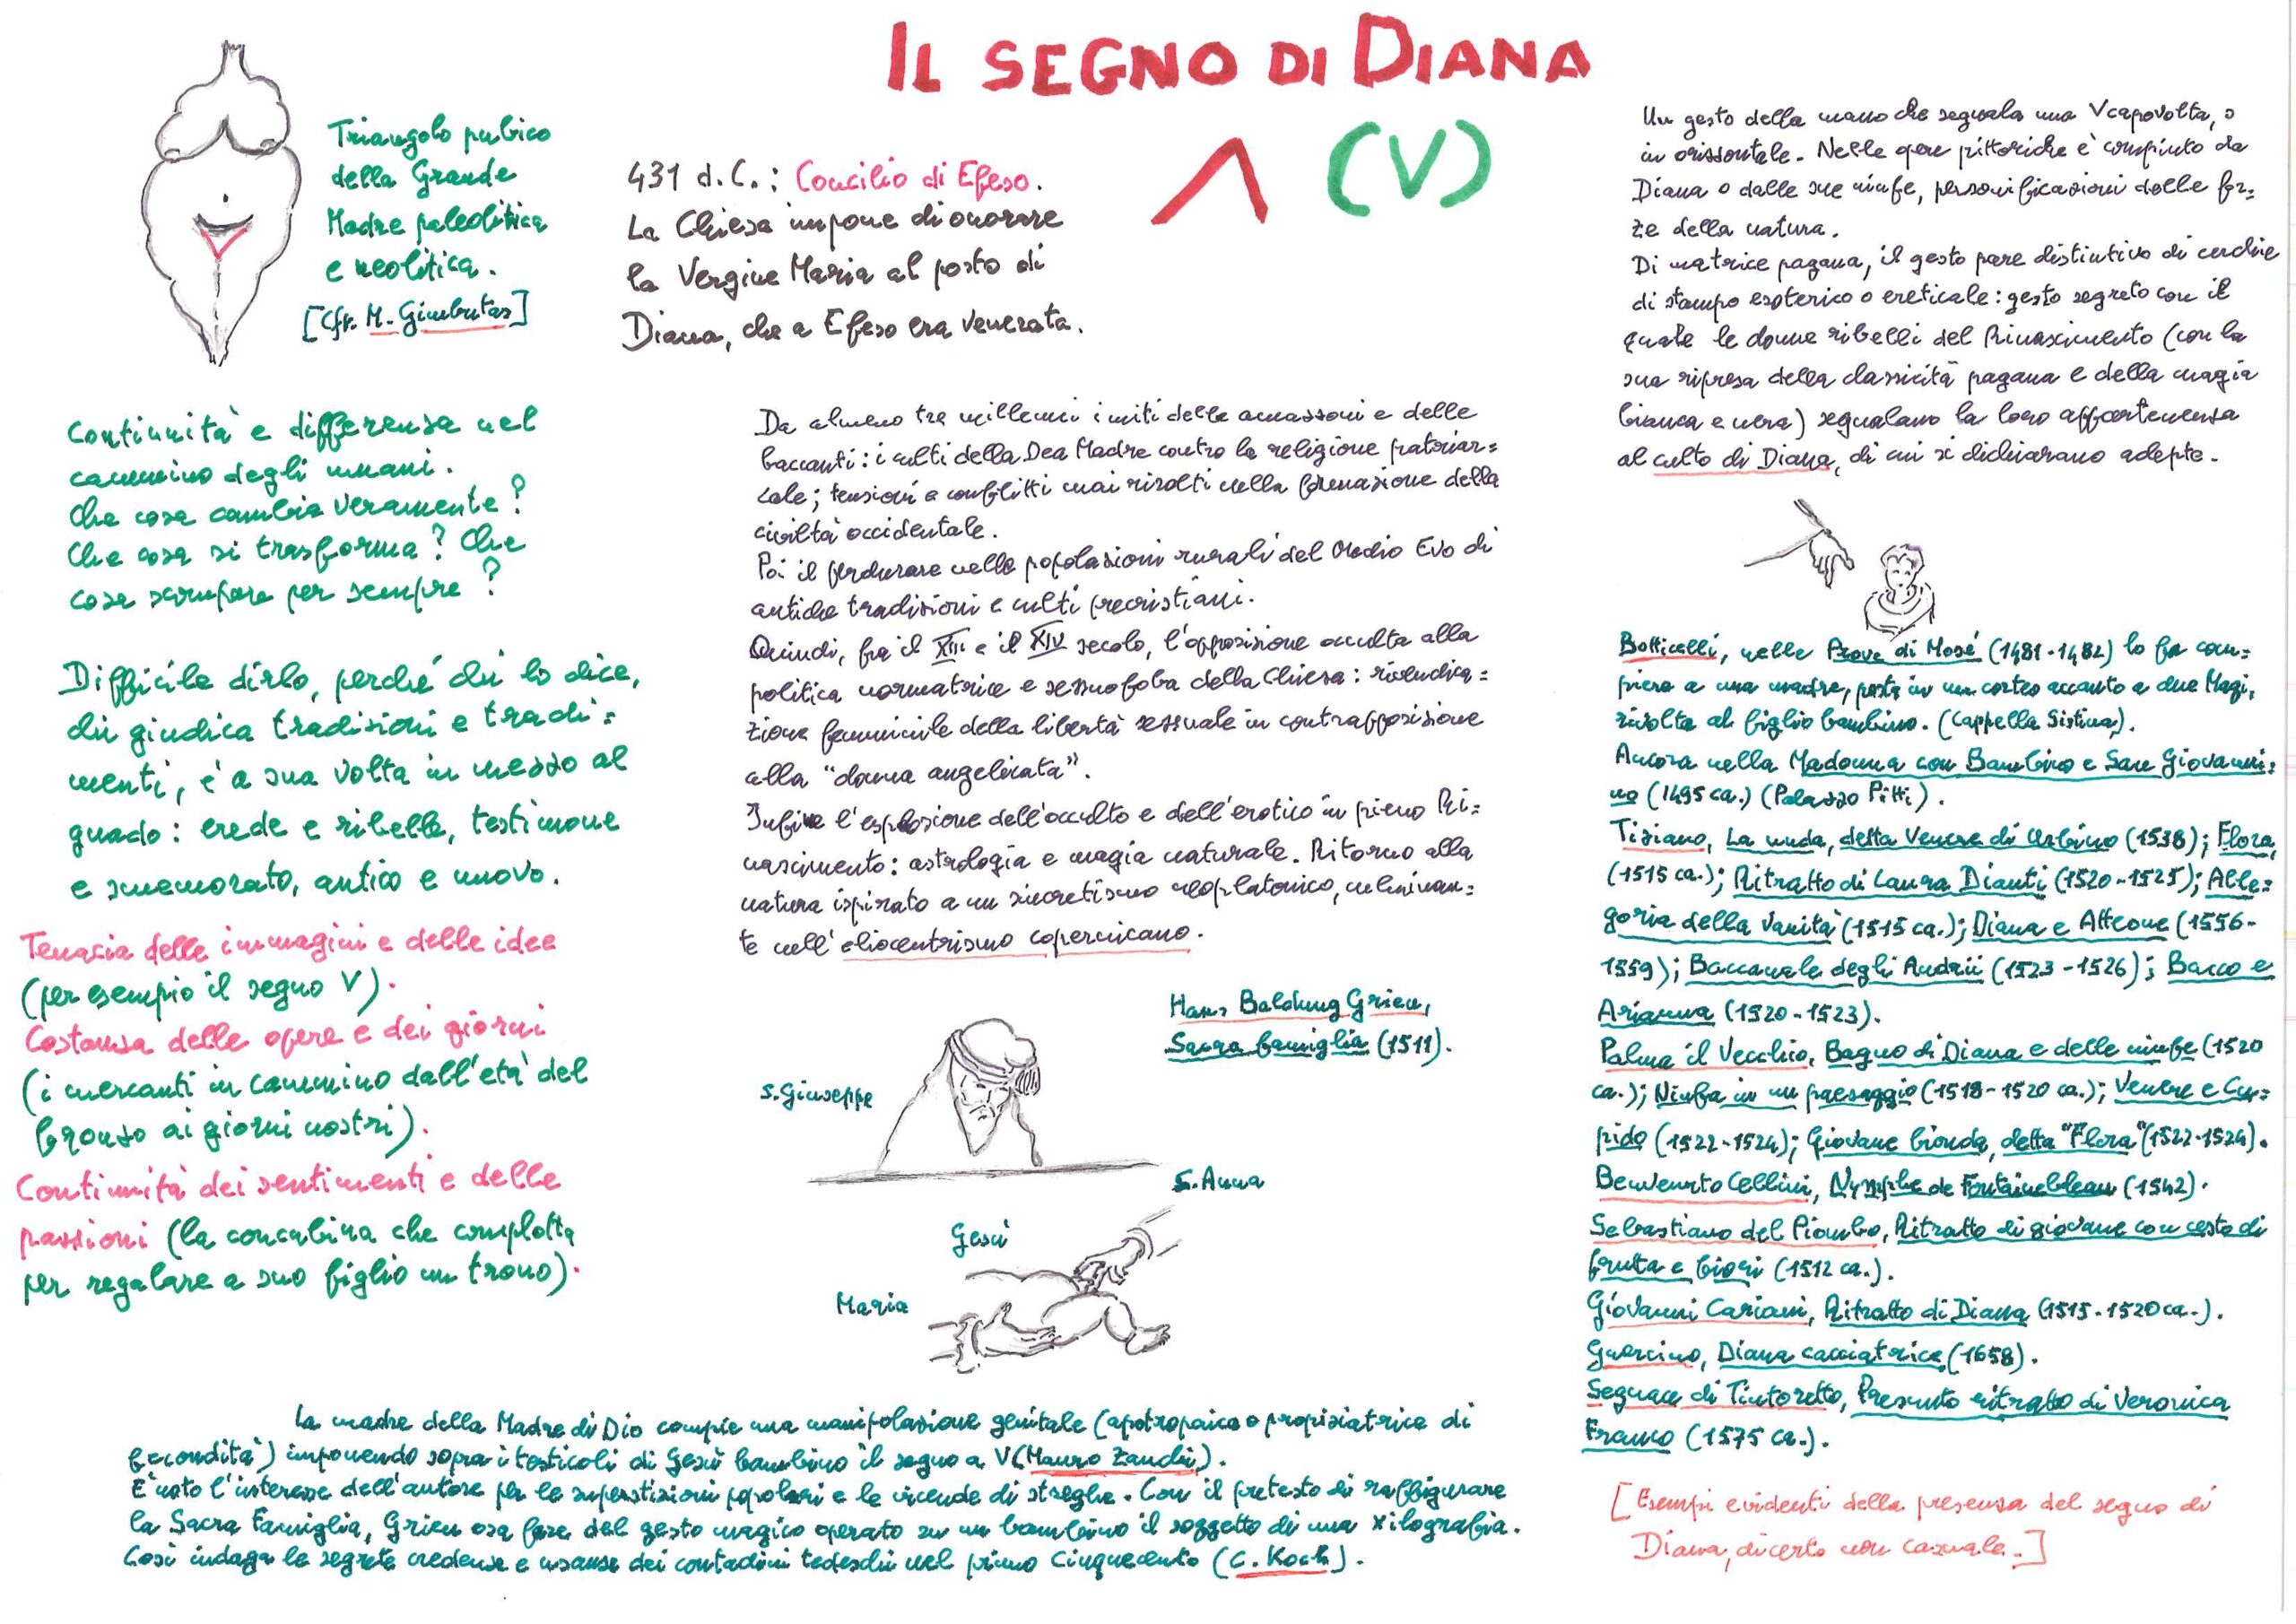 IL SEGNO DI DIANA
Λ (V)
Triangolo pubico
della Grande
Madre paleolitica
e neolitica.
[Cfr. M. Gimbutas]
431 d.C.: Concilio di Efeso.
La Chiesa impone di onorare
la Vergine Maria al posto di
Diana, che a Efeso era venerata.
Continuità e differenza nel
cammino degli umani.
Che cosa cambia veramente?
Che cosa si trasforma? Che
cosa scompare per sempre?
Difficile dirlo, perché chi lo dice,
chi giudica tradizioni e tradi=
menti, è a sua volta in mezzo al
guado: erede e ribelle, testimone
e smemorato, antico e nuovo.
Tenacia delle immagini e delle idee
(per esempio il segno V).
Costanza delle opere e dei giorni
(i mercanti in cammino dall'età del
bronzo ai giorni nostri).
Continuità dei sentimenti e delle
passioni (la concubina che complotta
per regalare a suo figlio un trono).
Da almeno tre millenni i miti delle amazzoni e delle
baccanti: i culti della Dea Madre contro la religione patriar=
cale; tensioni e conflitti mai risolti nella formazione della
civiltà occidentale.
Poi il perdurare nelle popolazioni rurali del Medio Evo di
antiche tradizioni e culti precristiani.
Quindi, fra il XIII e il XIV secolo, l'opposizione occulta alla
politica normatrice e sessuofoba della Chiesa: rivendica=
zione femminile della libertà sessuale in contrapposizione
alla "donna angelicata".
Infine l'esplosione dell'occulto e dell'erotico in pieno Ri=
nascimento: astrologia e magia naturale. Ritorno alla
natura ispirato a un sincretismo neoplatonico, culminan=
te nell'eliocentrismo copernicano.
Hans Baldung Grien,
Sacra famiglia (1511).
S. Giuseppe
S. Anna
Gesù
Maria
La madre della Madre di Dio compie una manipolazione genitale (apotropaica o propiziatrice di
fecondità) imponendo sopra i testicoli di Gesù bambino il segno a V (Mauro Zanchi).
È noto l'interesse dell'autore per le superstizioni popolari e le vicende di streghe. Con il pretesto di raffigurare
la Sacra Famiglia, Grien osa fare del gesto magico operato su un bambino il soggetto di una xilografia.
Così indaga le segrete credenze e usanze dei contadini tedeschi nel primo Cinquecento (C. Koch).
Un gesto della mano che segnala una V capovolta, o
in orizzontale. Nelle opere pittoriche è compiuto da
Diana o dalle sue ninfe, personificazioni delle for=
ze della natura.
Di matrice pagana, il gesto pare distintivo di cerchie
di stampo esoterico o ereticale: gesto segreto con il
quale le donne ribelli del Rinascimento (con la
sua ripresa della classicità pagana e della magia
bianca e nera) segnalano la loro appartenenza
al culto di Diana, di cui si dichiarano adepte.
Botticelli, nelle Prove di Mosé (1481-1482) lo fa com=
piere a una madre, posta in un corteo accanto a due Magi,
rivolta al figlio bambino. (Cappella Sistina).
Ancora nella Madonna con Bambino e San Giovanni=
no (1495 ca.) (Palazzo Pitti).
Tiziano, La nuda, detta Venere di Urbino (1538); Flora
(1515 ca.); Ritratto di Laura Dianti (1520-1525); Alle=
goria della Vanità (1515 ca.); Diana e Atteone (1556-
1559); Baccanale degli Andrii (1523-1526); Bacco e
Arianna (1520-1523).
Palma il Vecchio, Bagno di Diana e delle ninfe (1520
ca.); Ninfa in un paesaggio (1518-1520 ca.); Venere e Cu=
pido (1522-1524); Giovane bionda, detta "Flora" (1522-1524).
Benvenuto Cellini, Nymphe de Fontainebleau (1542).
Sebastiano del Piombo, Ritratto di giovane con cesto di
frutta e fiori (1512 ca.).
Giovanni Cariani, Ritratto di Diana (1515-1520 ca.).
Guercino, Diana cacciatrice (1658).
Seguace di Tintoretto, Presunto ritratto di Veronica
Franco (1575 ca.).
[Esempi evidenti della presenza del segno di
Diana, di certo non casuale.]